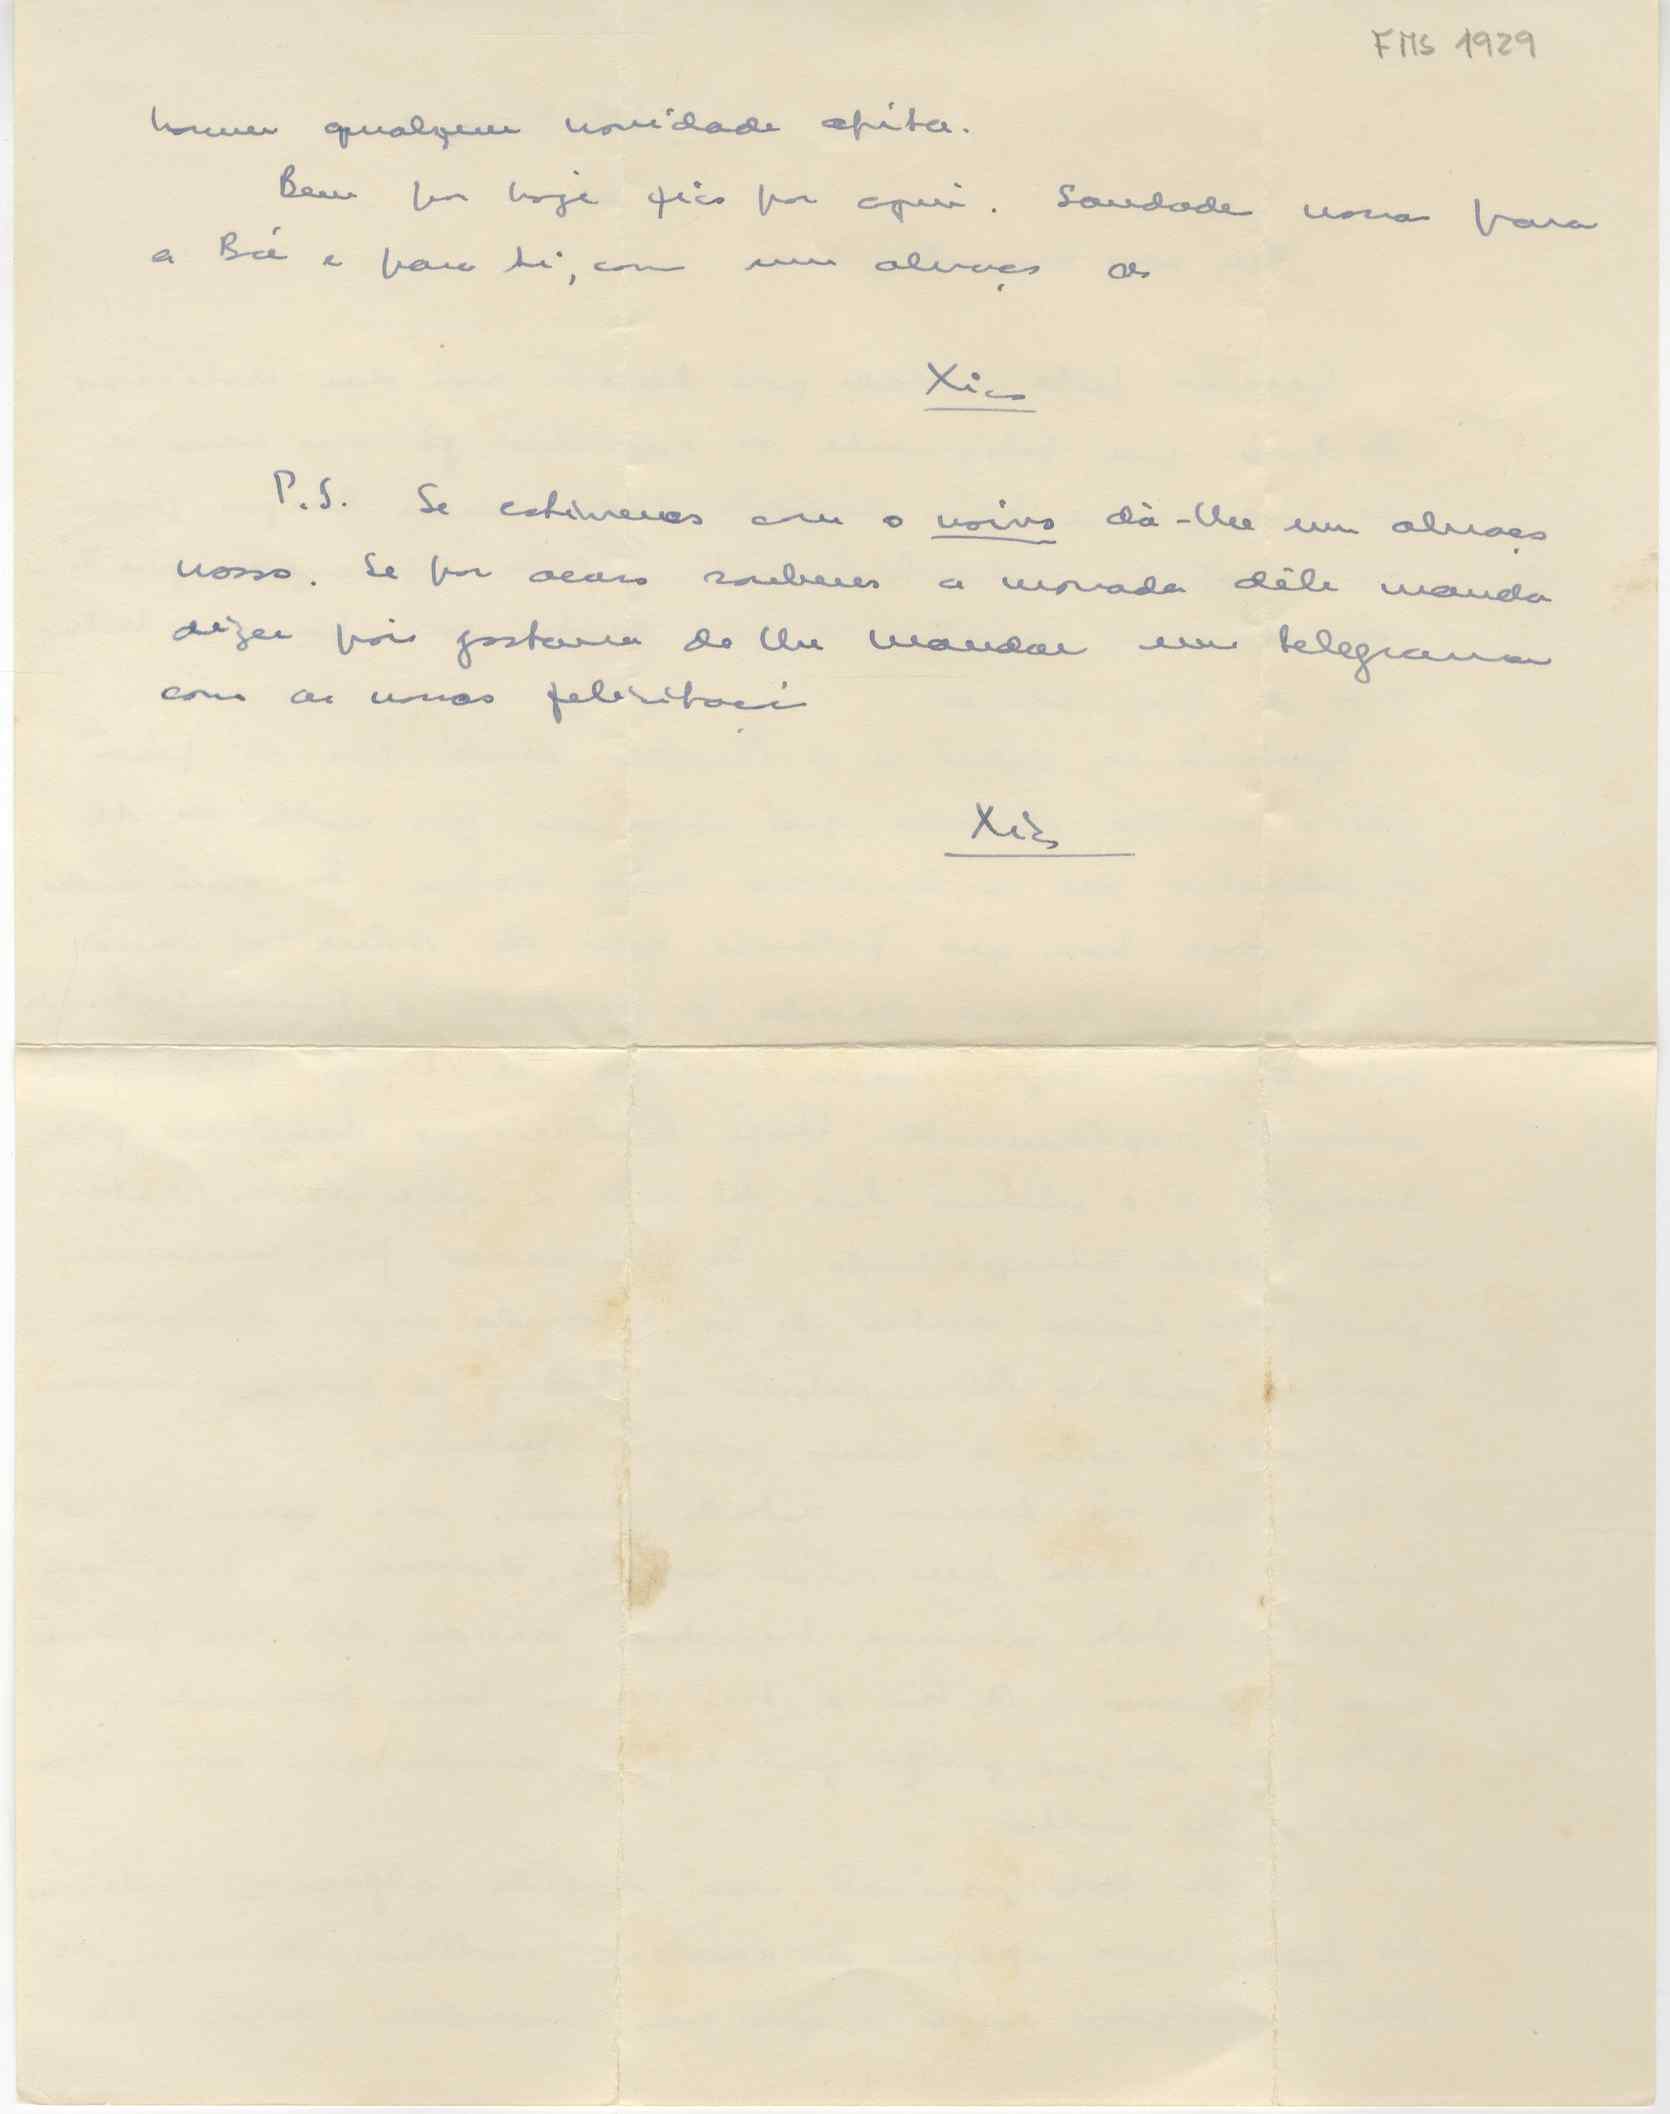 FMS 1929
houver qualquer novidade apita.
Bem por hoje fico por aqui. Saudades nossas para
a Bé e para ti, com um abraço do
Xico
P.S. Se estiveres com o noivo dá-lhe um abraço
nosso. Se por acaso souberes a morada dêle manda
dizer pois gostava de lhe mandar um telegrama
com as nossas felicitações
Xico